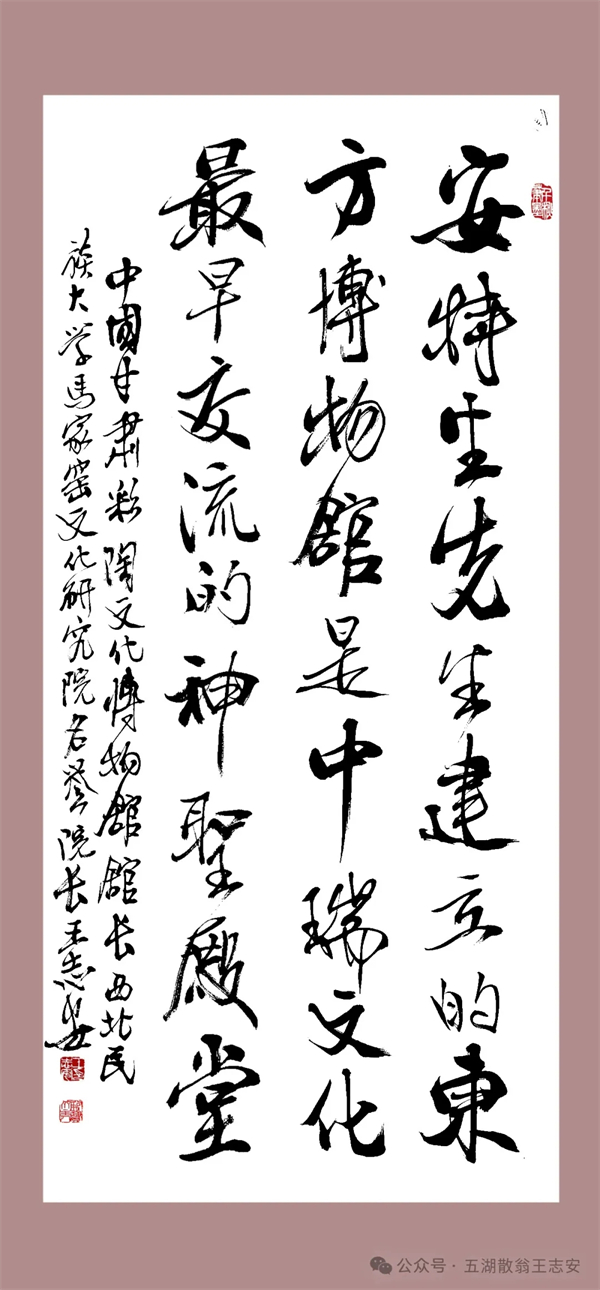 安特生先生建立的東
方博物館是中瑞文化
最早交流的神聖殿堂
中國甘肅彩陶文化博物館館长西北民
族大学馬家窑文化研究院名誉院长王志安
公众号·五湖散翁王志安